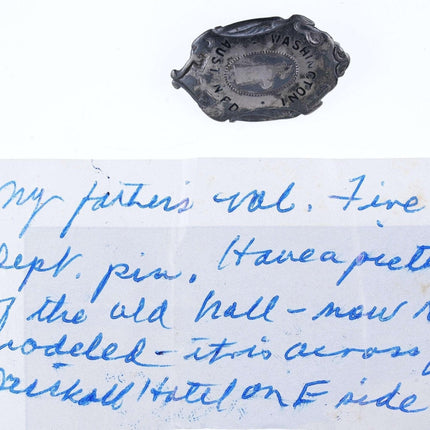 WASHINGTON 1
AUSTIN F D
My father's vol. Fire
Dept. pin. Have a pict
of the old hall - now r
modeled - it is across f
Driskell Hotel on E side